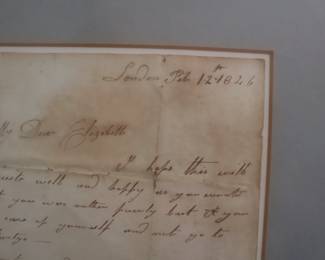 London Feb 12th 1846
My Dear Elizabeth
I hope this will
quite well and happy as you
you was rather poorly but
care of yourself and not go to